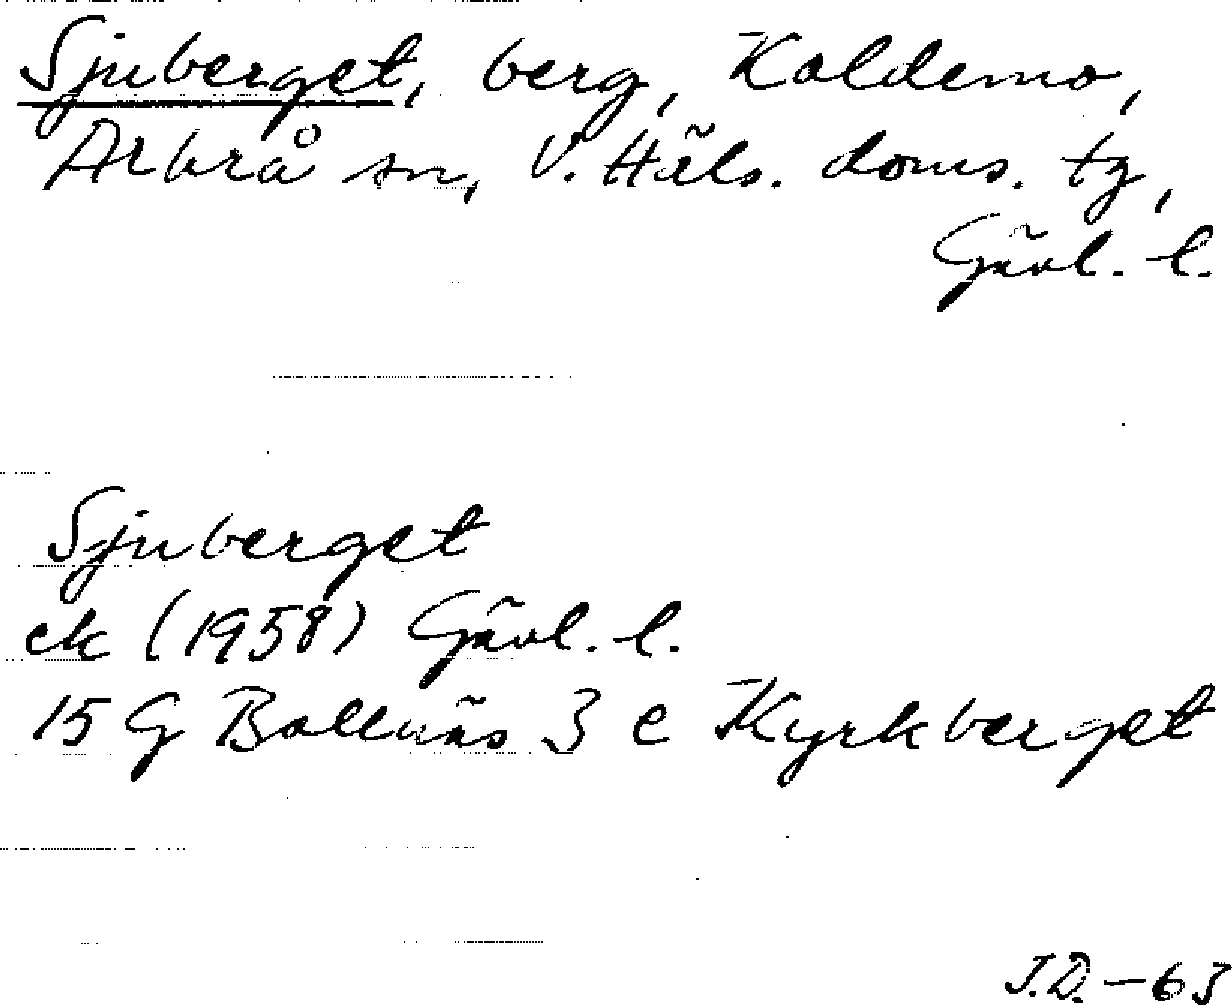 Sjuberget, berg, Koldemo,
Arbrå sn, V. Häls. doms. tg,
Gävl. l.
Sjuberget
ek (1958) Gävl. l.
15 G Bollnäs 3 e Kyrkberget
J.D. - 63